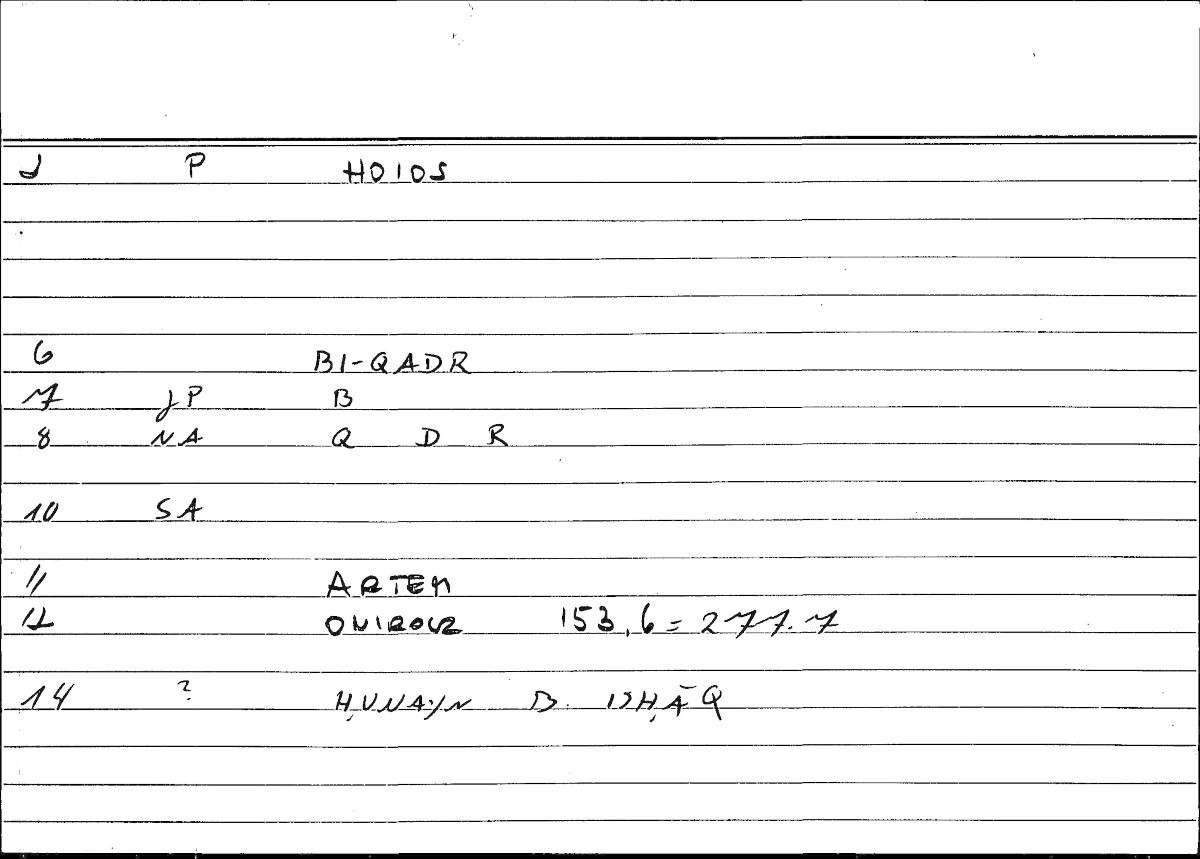 J P HOIOS
6 BI-QADR
7 JP B
8 NA Q D R
10 SA
11 ARTEM
12 ONIROCR 153,6 = 277.7
14 ? ḤUNAYN B. ISḤĀQ